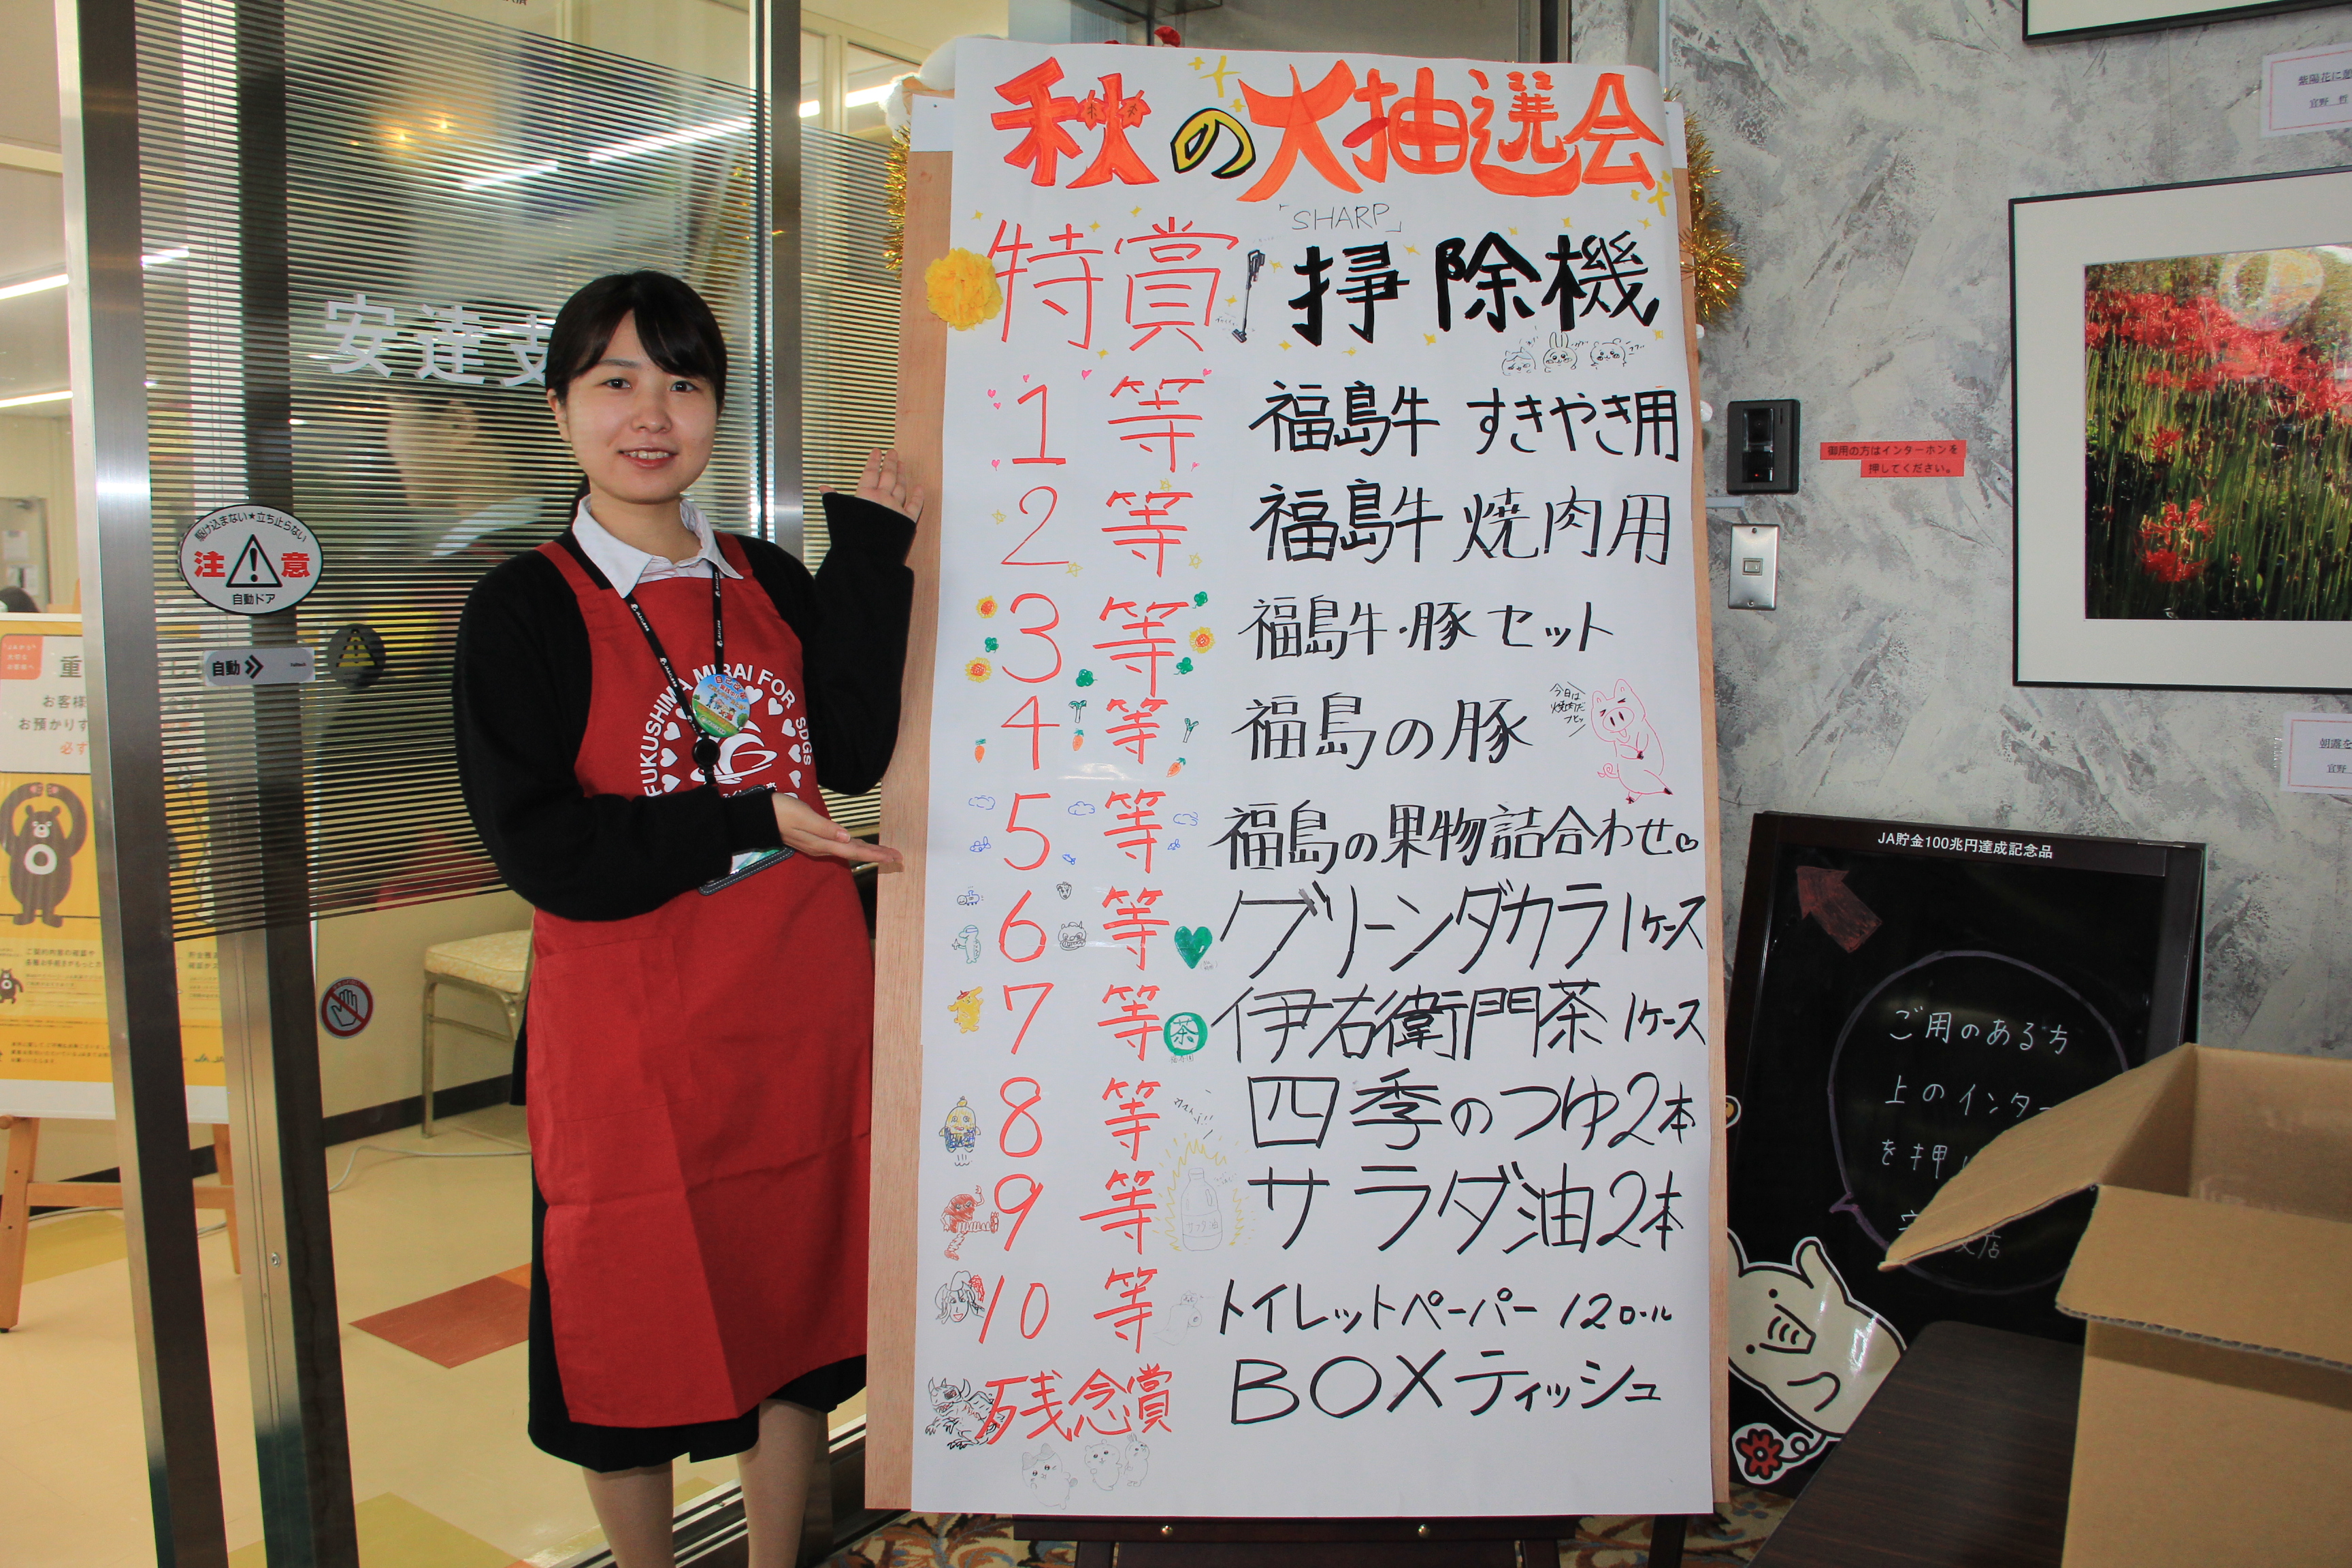 秋の大抽選会
「SHARP」
特賞 掃除機
1等 福島牛 すきやき用
2等 福島牛 焼肉用
3等 福島牛・豚 セット
4等 福島の豚
今日は
焼肉だ
5等 福島の果物詰合わせ♡
6等 グリーンダカラ 1ケース
7等 茶 伊右衛門茶 1ケース
8等 四季のつゆ2本
9等 サラダ油2本
10等 トイレットペーパー 12ロール
残念賞 BOXティッシュ
安達支
駆け込まない★立ち止らない
注意
自動ドア
自動
FUKUSHIMA MIRAI FOR SDGs
重
お客様
お預かりす
必ず
御用の方はインターホンを
押してください。
紫陽花に
宜野 哲
朝露を
宜野
JA貯金100兆円達成記念品
ご用のある方
上のインター
を押
店